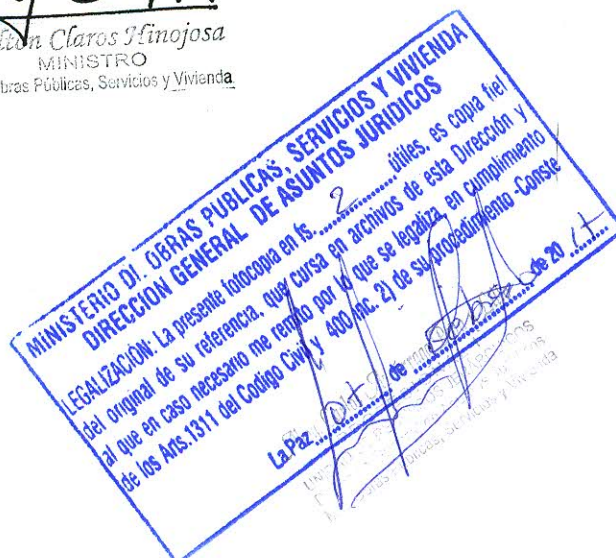 Claros Hinojosa
MINISTRO
bras Públicas, Servicios y Vivienda
MINISTERIO DE OBRAS PUBLICAS, SERVICIOS Y VIVIENDA
DIRECCION GENERAL DE ASUNTOS JURIDICOS
LEGALIZACIÓN: La presente fotocopia en fs. 2 útiles, es copia fiel
del original de su referencia, que cursa en archivos de esta Dirección y
al que en caso necesario me remito por lo que se legaliza en cumplimiento
de los Arts.1311 del Codigo Civil y 400 inc. 2) de su procedimiento -Conste
La Paz de de 20
Públicas, Servicios y Vivienda